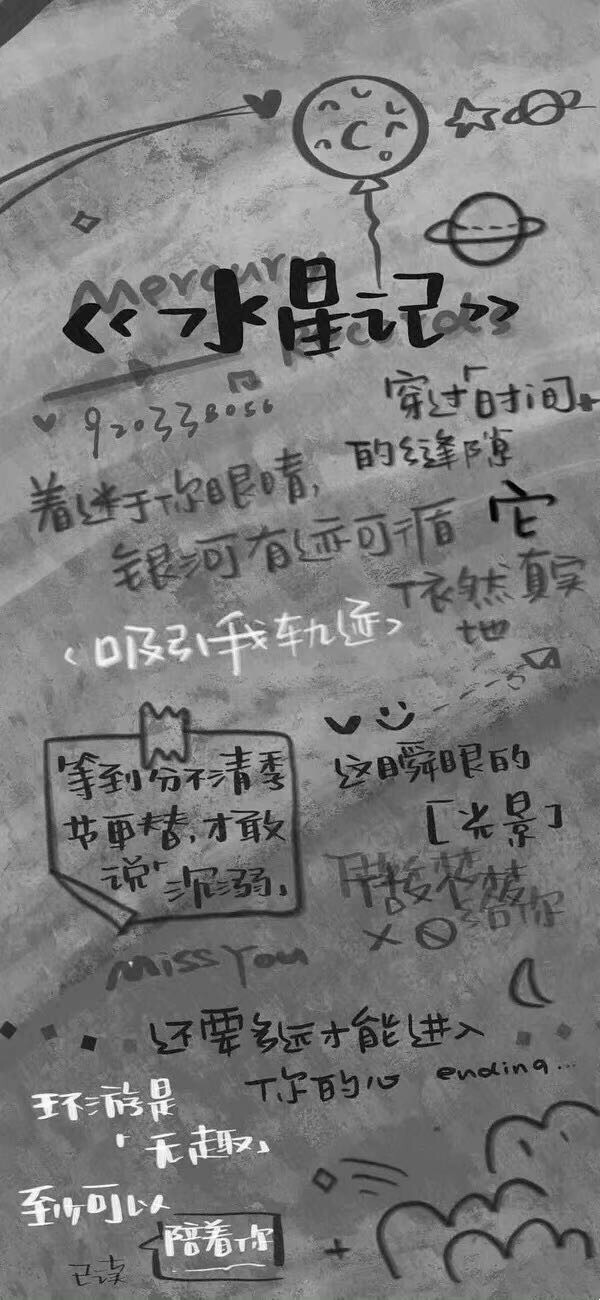 Mercury Records
《水星记》
920338056
穿过「时间
的缝隙
着迷于你眼睛,
银河有迹可循
它
依然真实
地
<吸引我轨迹>
等到分不清季
节更替,才敢
说「沉溺」
这瞬眼的
[光景]
给你
Miss You
还要多远才能进入
你的心 ending...
环游是
「无趣」
至少可以
陪着你
已读